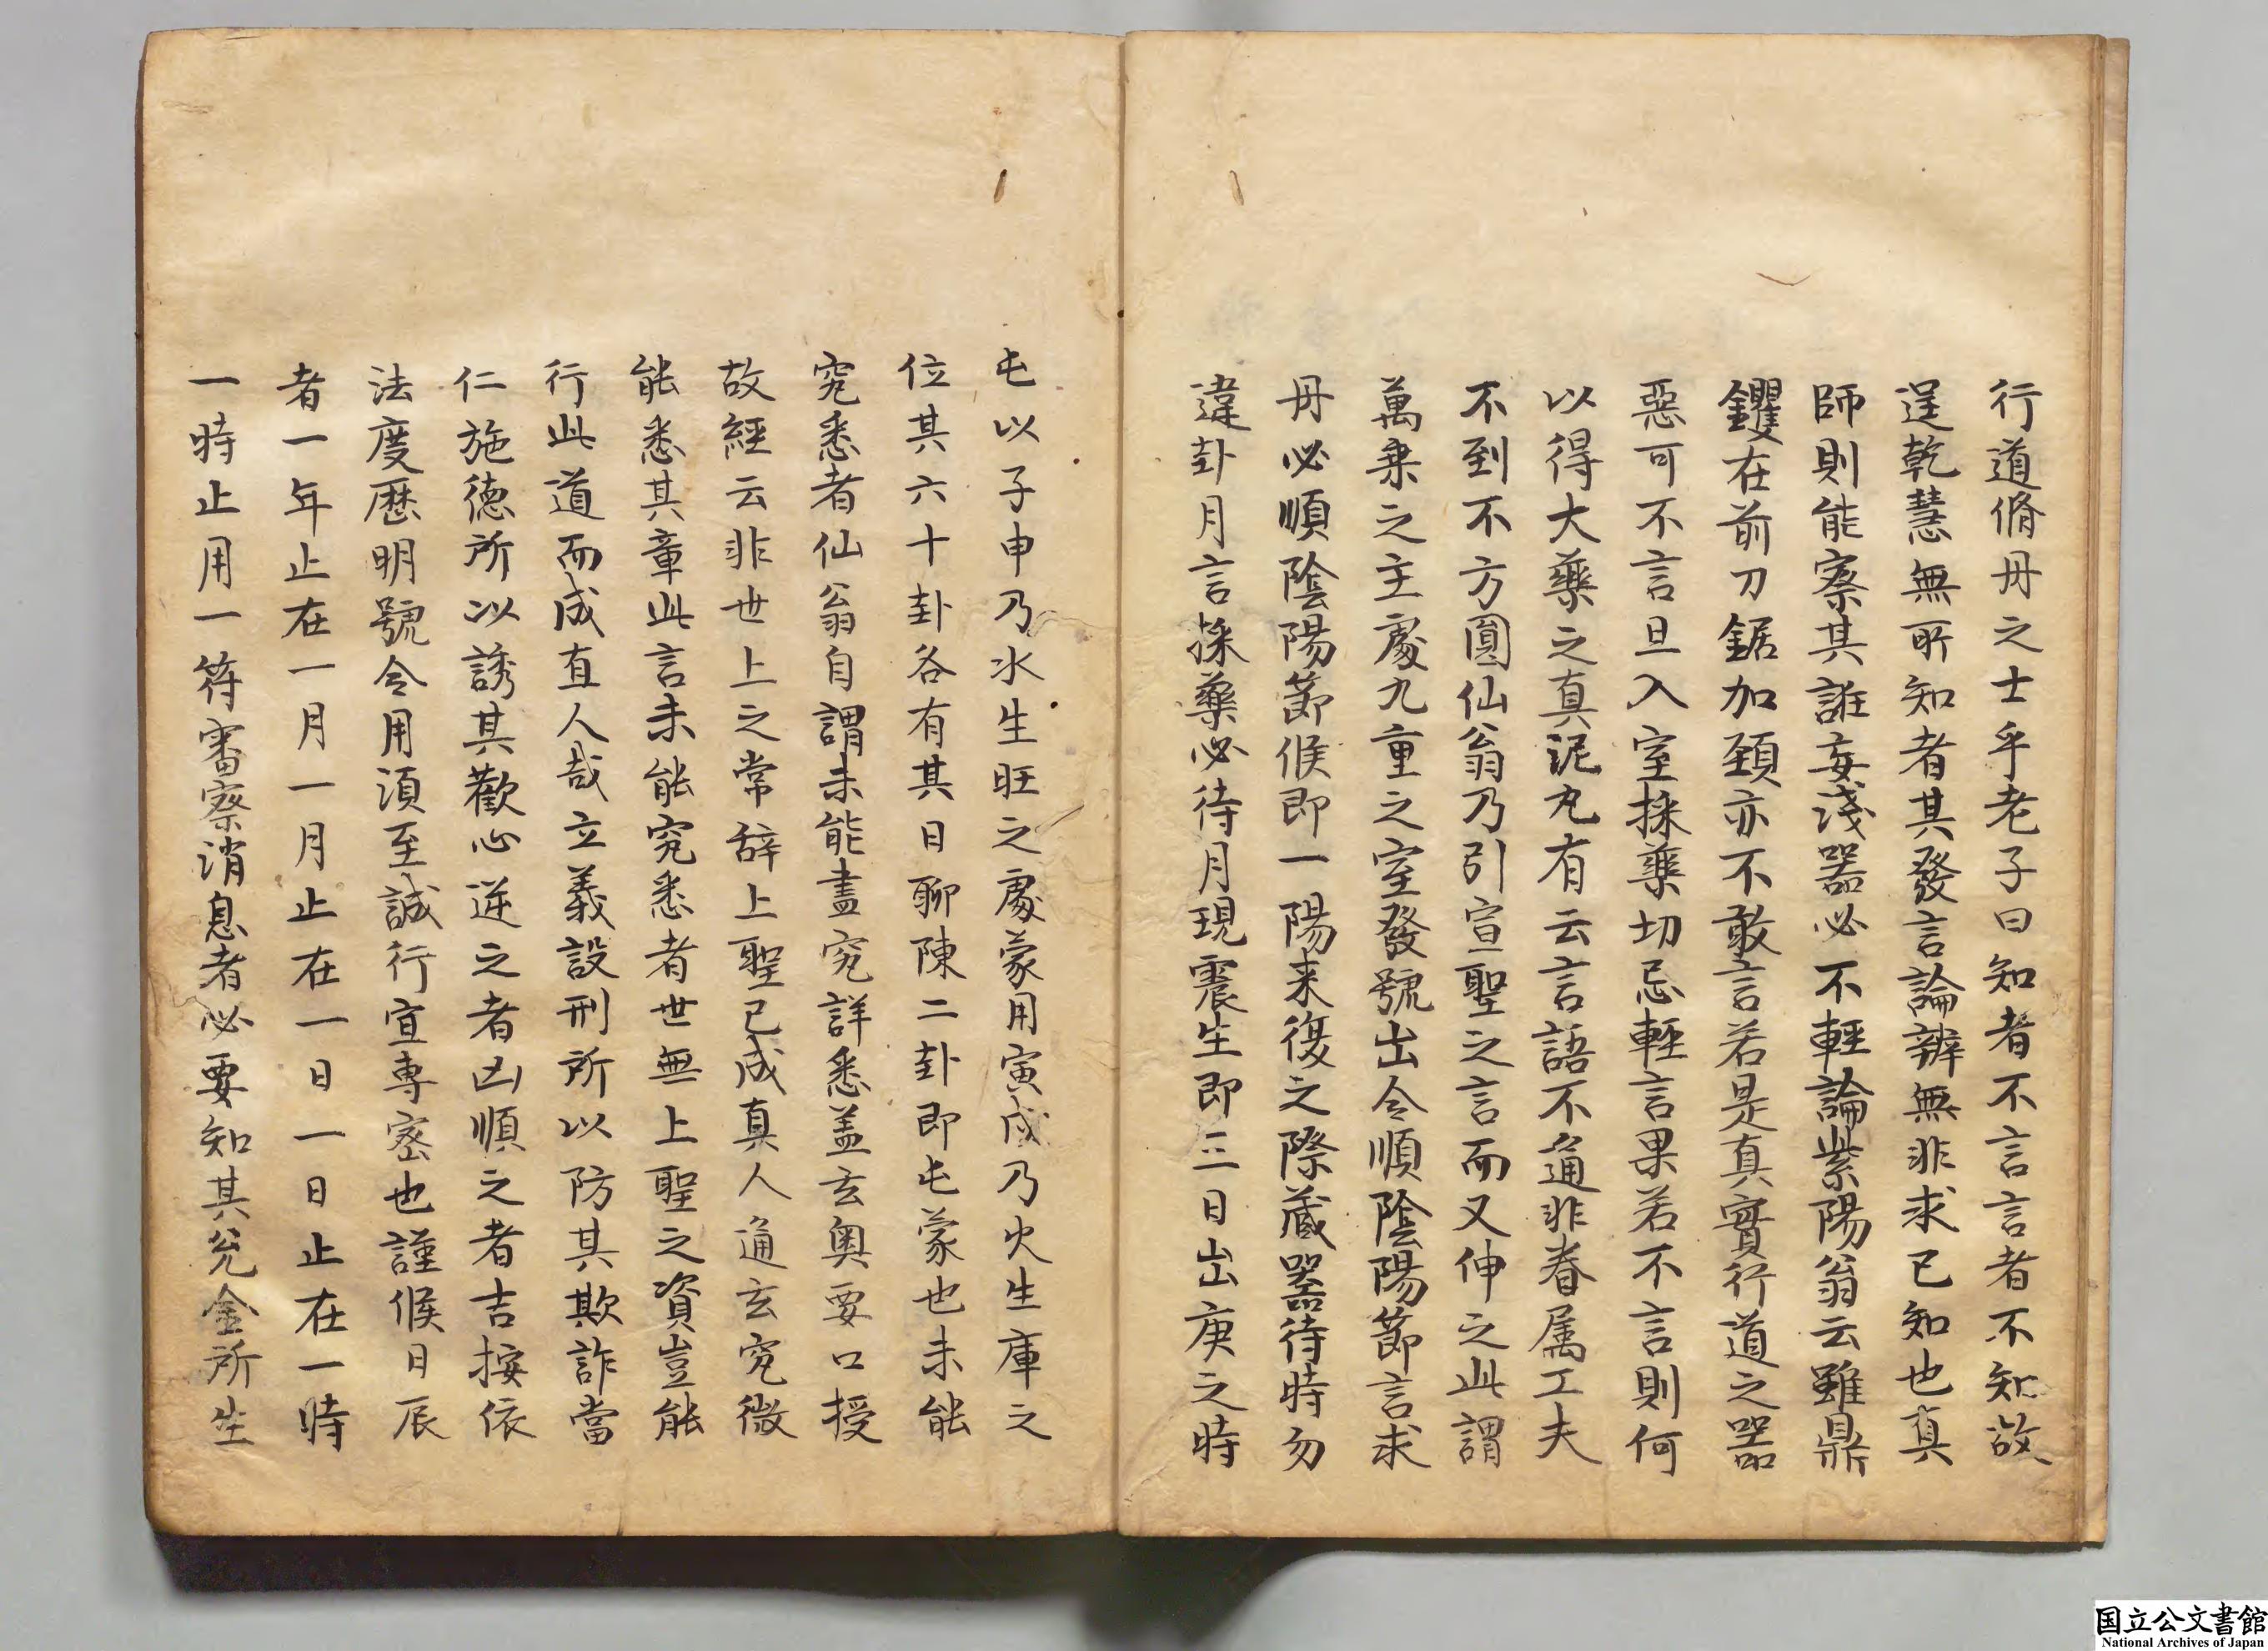 行道脩丹之士乎老子曰知者不言言者不知故
逞乾慧無所知者其發言論辨無非求已知也真
師則能察其誑妄淺器必不輕論紫陽翁云雖鼎
钁在前刀鋸加頚亦不敢言若是真實行道之器
惡可不言旦入室採藥切忌輕言果若不言則何
以得大藥之真泥丸有云言語不通非眷属工夫
不到不方圓仙翁乃引宣聖之言而又伸之此謂
萬乗之主處九重之室發號出令順陰陽節言求
丹必順陰陽節候即一陽来復之際蔵器待時勿
違卦月言採藥必待月現震生即三日出庚之時
屯以子申乃水生旺之處蒙用寅戌乃火生庫之
位其六十卦各有其日聊陳二卦即屯蒙也未能
究悉者仙翁自謂未能盡究詳悉盖玄奥要口授
故經云非世上之常辞上聖已成真人通玄究微
能悉其章此言未能究悉者世無上聖之資豈能
行此道而成直人哉立義設刑所以防其欺詐當
仁施德所以誘其歡心逆之者凶順之者吉按依
法度歴明號令用須至誠行宣専密也謹候日辰
者一年止在一月一月止在一日一日止在一時
一時止用一符審察消息者必要知其兊金所生
国立公文書館
National Archives of Japan